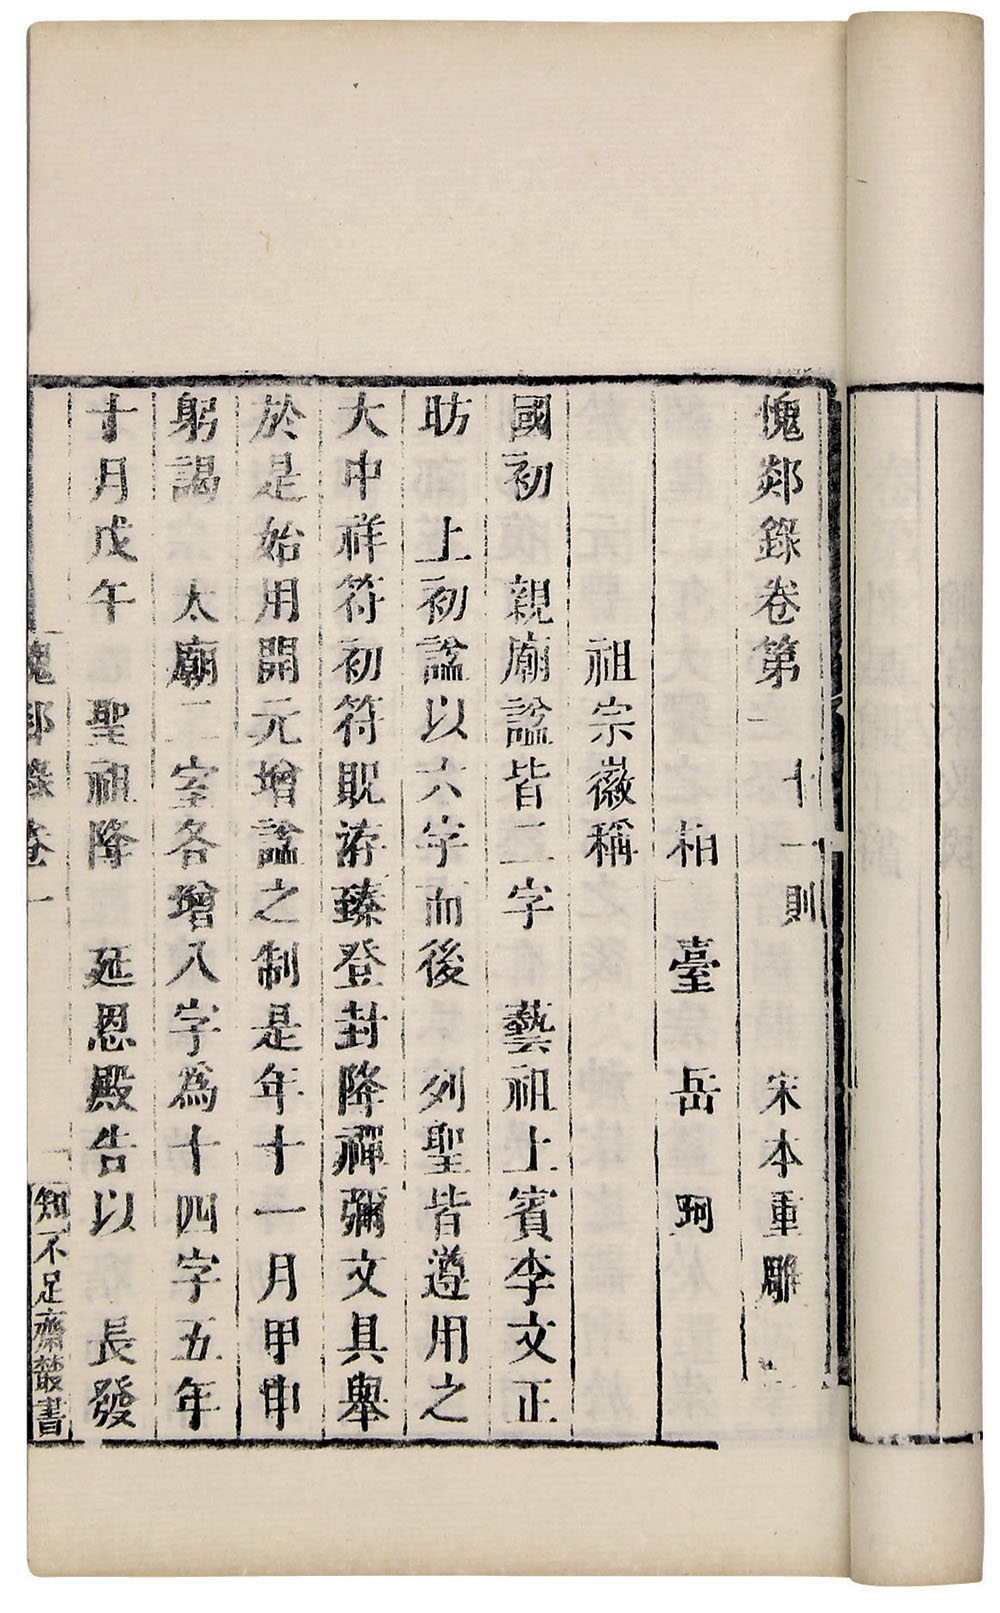 愧郯錄卷第一 十一則 宋本重雕
柏臺岳珂
祖宗徽稱
國初 親廟諡皆二字 藝祖上賓李文正
昉 上初諡以六字而後 列聖皆遵用之
大中祥符初符貺洊臻登封降禪彌文具舉
於是始用開元增諡之制是年十一月甲申
躬謁 太廟二室各增八字為十四字五年
十月戊午 聖祖降 延恩殿告以 長發
愧郯錄卷一 一 知不足齋叢書